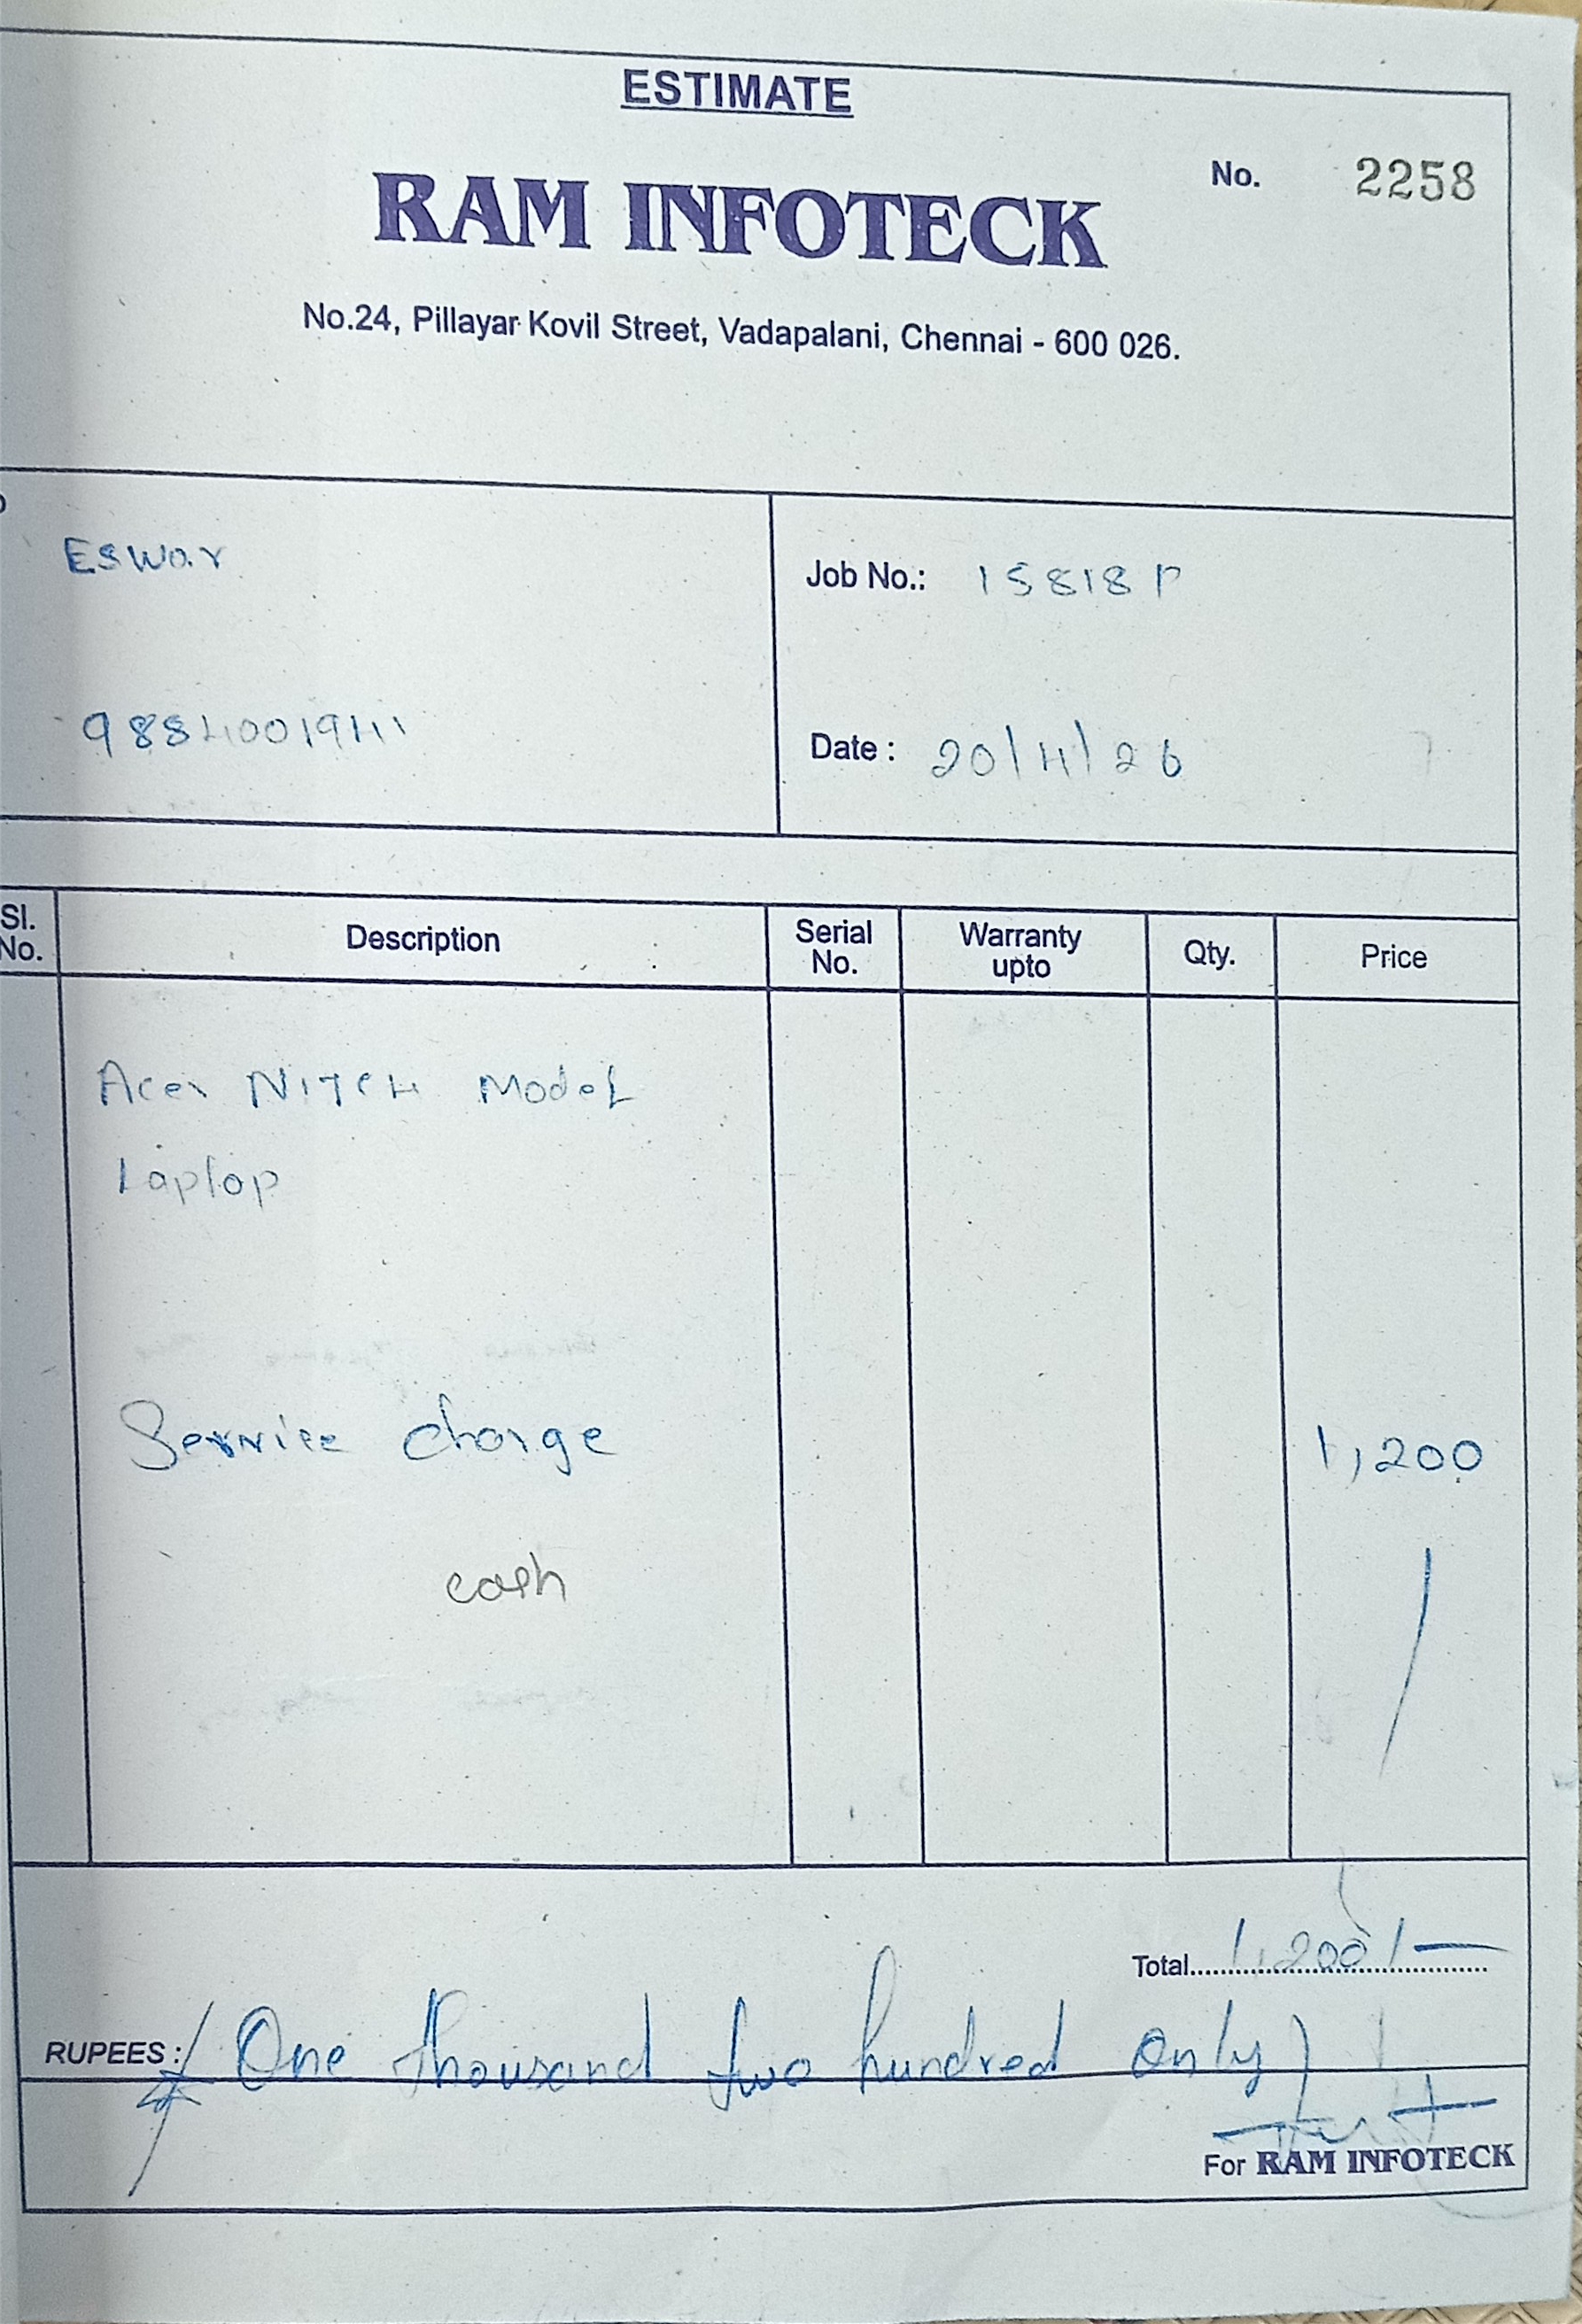 ESTIMATE
No. 2258
RAM INFOTECK
No.24, Pillayar Kovil Street, Vadapalani, Chennai - 600 026.
Eswar
Job No.: 15818 P
9884001941
Date : 20/4/26
Sl. No. Description Serial No. Warranty upto Qty. Price
Acer Model
Laptop
Service charge 1,200
cash
Total 1,200/-
RUPEES : One thousand two hundred only
For RAM INFOTECK